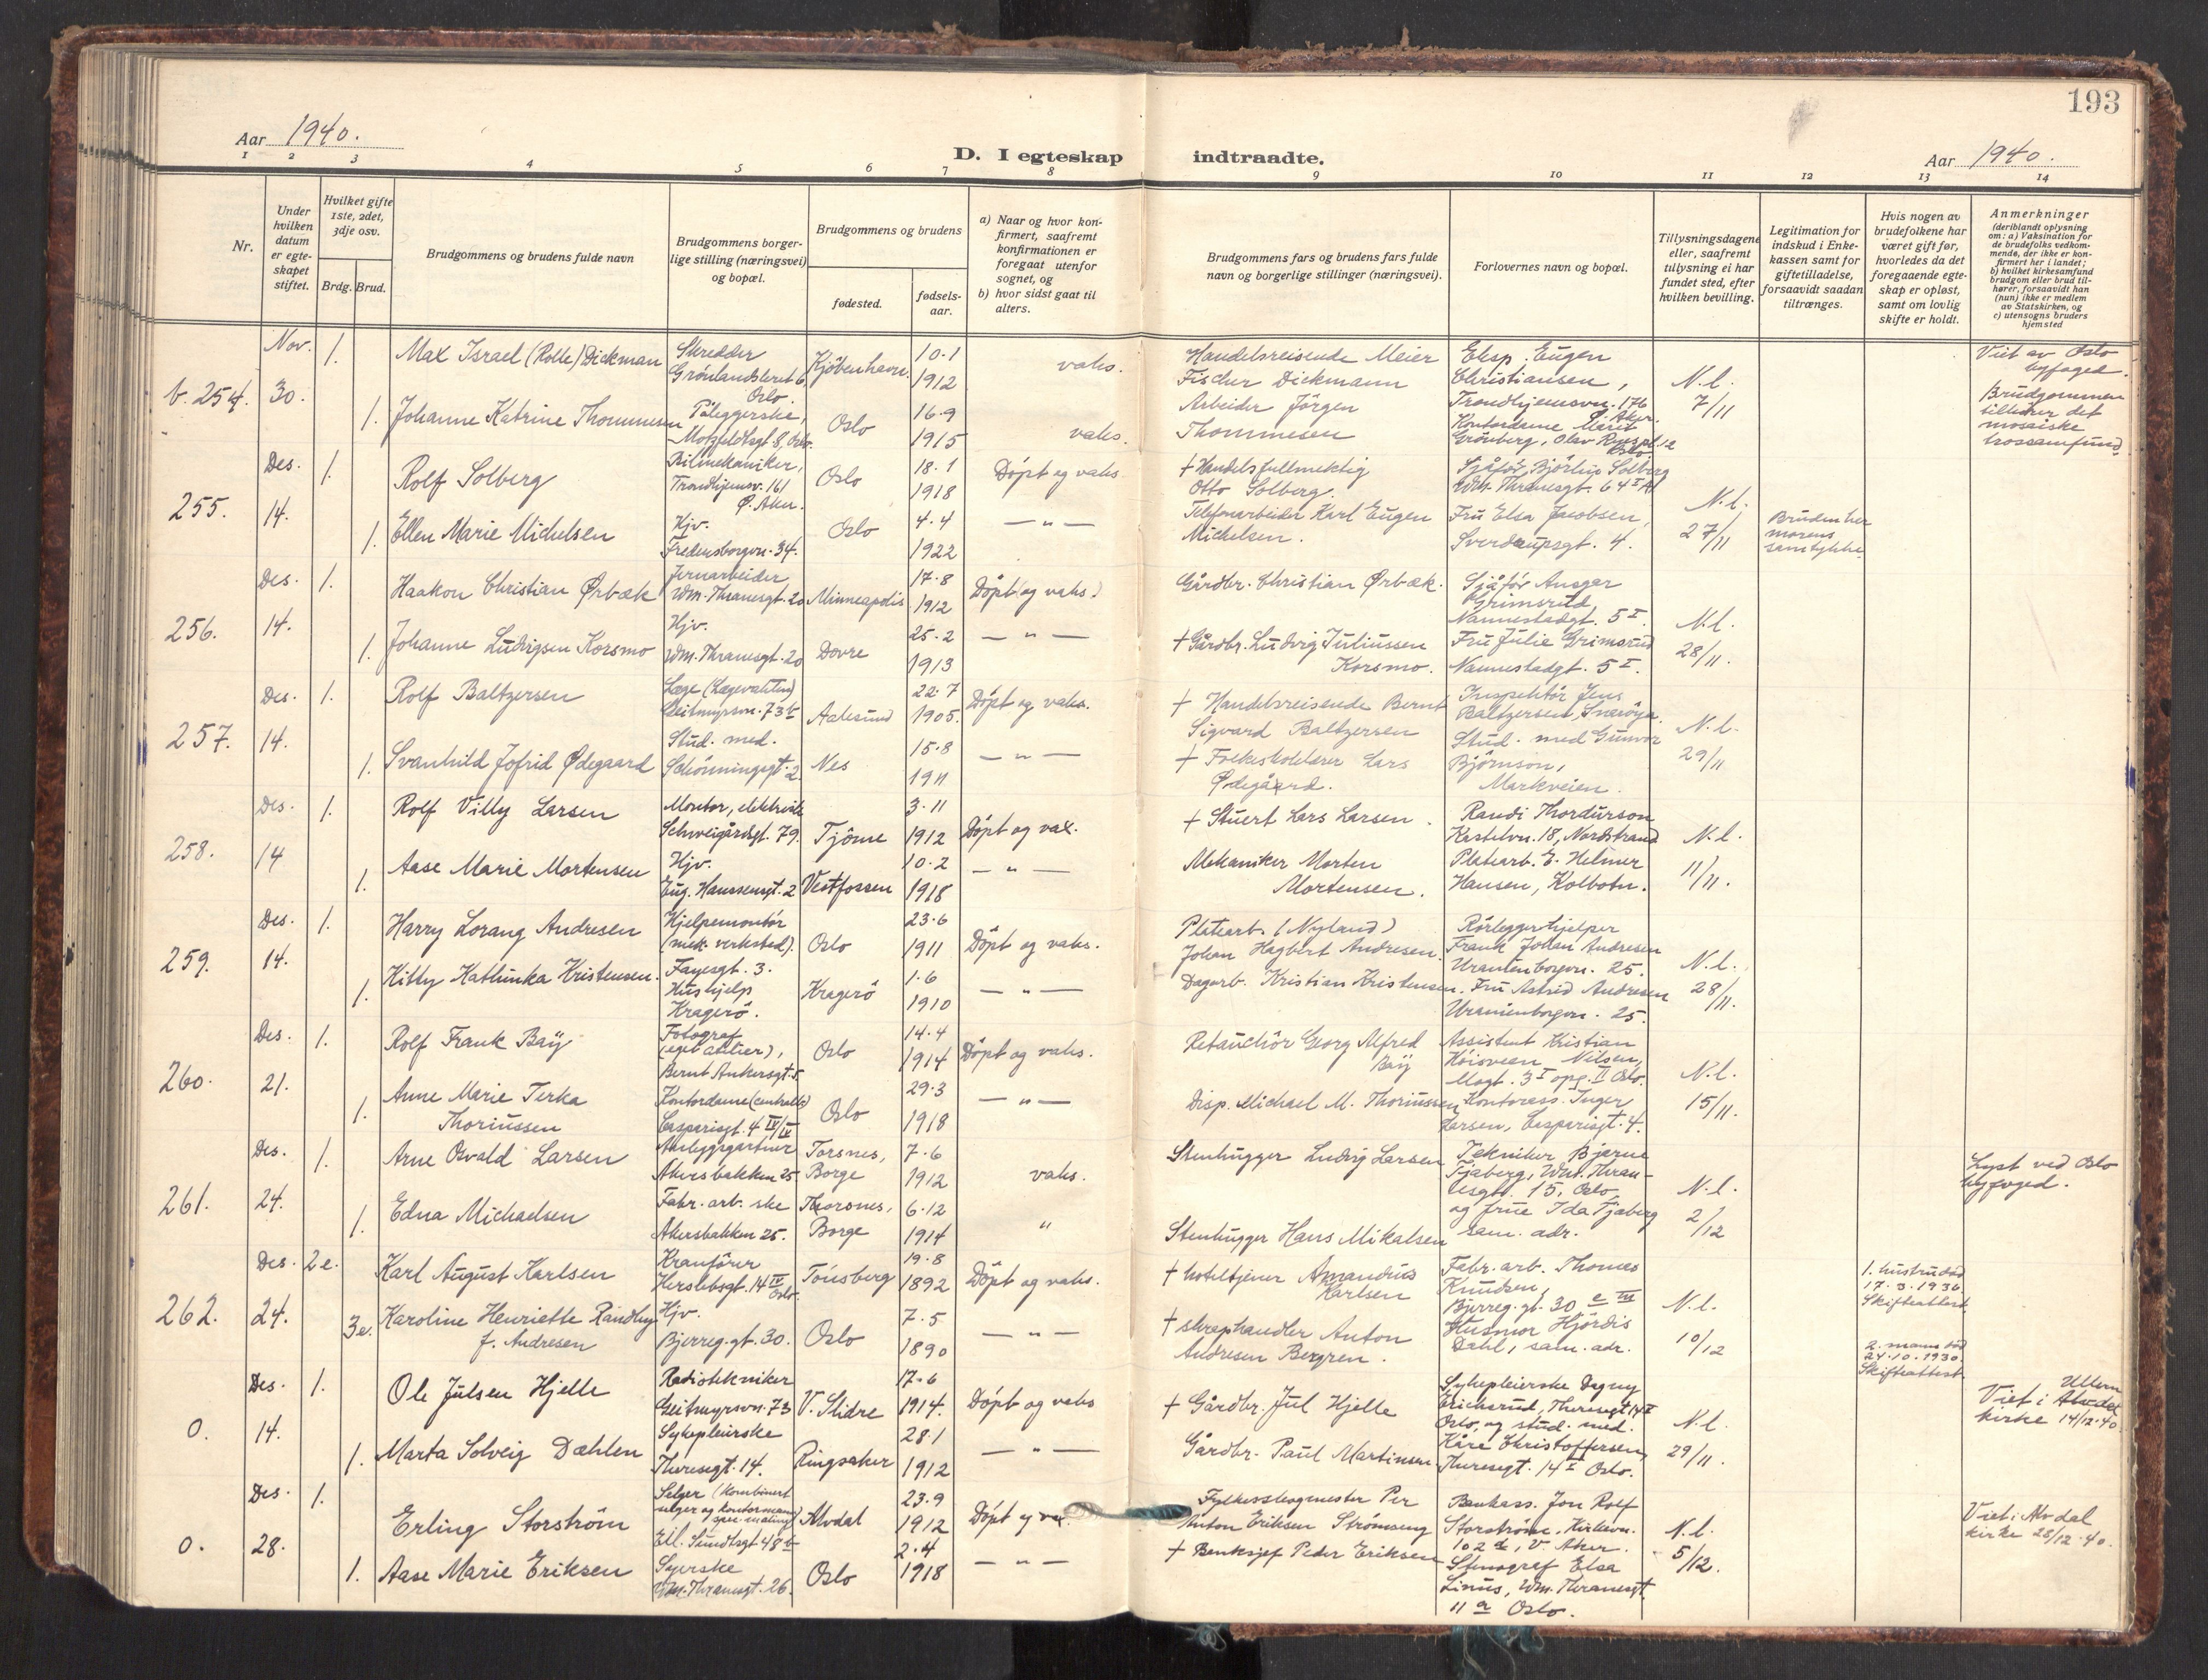 193
Aar 1940.
D. I egteskap indtraadte.
Aar 1940.
1 2 3 4 5 6 7 8 9 10 11 12 13 14
Nr.
Under hvilken datum er egteskapet stiftet.
Hvilket gifte 1ste, 2det, 3dje osv.
Brdg. Brud.
Brudgommens og brudens fulde navn
Brudgommens borgerlige stilling (næringsvei) og bopæl.
Brudgommens og brudens
fødested.
fødselsaar.
a) Naar og hvor konfirmert, saafremt konfirmationen er foregaat utenfor sognet, og
b) hvor sidst gaat til alters.
Brudgommens fars og brudens fars fulde navn og borgerlige stillinger (næringsvei).
Forlovernes navn og bopæl.
Tillysningsdagene eller, saafremt tillysning ei har fundet sted, efter hvilken bevilling.
Legitimation for indskud i Enkekassen samt for giftetilladelse, forsaavidt saadan tiltrænges.
Hvis nogen av brudefolkene har været gift før, hvorledes da det foregaaende egteskap er opløst, samt om lovlig skifte er holdt.
Anmerkninger (deriblandt oplysning om: a) Vaksination for de brudefolks vedkommende, der ikke er konfirmert her i landet; b) hvilket kirkesamfund brudgom eller brud tilhører, forsaavidt han (hun) ikke er medlem av Statskirken, og c) utensogns bruders hjemsted
b. 254. Nov. 30. 1. Max Israel (Rolle) Dickman
Skredder Grönlandsleret 6, Oslo.
Kjöbenhavn. 10-1 1912 vaks.
Handelsreisende Meier Fischer Dickmann
Eksp. Eugen Christiansen, Trondhjemsvn. 176 Ø. Aker.
N.l. 7/11
Viet av Oslo byfoged.
Brudgommen tilhører det mosaiske trossamfund.
1. Johanne Katrine Thommesen
Påleggerske, Motzfeldtsgt. 8, Oslo.
Oslo 16-9 1915 vaks.
Arbeider Jörgen Thommesen
Kontordame Marit Grönberg, Olav Ryespl. 12 Oslo.
255. Des. 14. 1. Rolf Solberg
Bilmekaniker, Trondhjemsv. 161 Ø. Aker.
Oslo 18-1 1918 Döpt og vaks
+ Handelsfullmektig Otto Solberg.
Sjåfør Björlup Solberg Wm. Thranesgt. 64 I A
N.l. 27/11
1. Ellen Marie Michelsen
Hjv. Fredensborgvn. 34.
Oslo 4-4 1922 — " —
Telefonarbeider Karl Eugen Michelsen.
Fru Elsa Jacobsen, Sverdrupsgt. 4.
Bruden her morens samtykke
256. Des. 14. 1. Haakon Christian Ørbæk
Jernarbeider, Wm. Thranesgt. 20
Minneapolis 17-8 1912 Döpt (og vaks.)
Gårdbr. Christian Ørbæk.
Sjåför Ansgar Grimsrud, Nannestadgt. 5 I.
N.l. 28/11.
1. Johanne Ludvigsen Korsmo
Hjv. Wm. Thranesgt. 20
Dovre 25-2 1913 — " —
+ Gårdbr. Ludvig Juliussen Korsmo.
Fru Julie Grimsrud Nannestadgt. 5 I.
257. Des. 14. 1. Rolf Baltzersen
Læge (Lægevakten) Geitmyrsvn. 73 b
Aalesund 22-7 1905. Döpt og vaks.
+ Handelsreisende Bernt Sigvard Baltzersen
Inspektör Jens Baltzersen, Snaröya.
N.l. 29/11
1. Svanhild Jofrid Ødegaard
Stud. med. Schönningsgt. 2
Nes 15-8 1911 — " —
+ Folkeskolelærer Lars Ødegård.
Stud. med Gunvor Björnson, Markveien.
258. Des. 14 1. Rolf Villy Larsen
Montør, elektrisk Schweigårdsgt. 79.
Tjöme 3-11 1912 Döpt og vax.
+ Stuert Lars Larsen.
Randi Thordurson Kastelvn. 18, Nordstrand
N.l. 11/11.
1. Aase Marie Mortensen
Hjv. Eug. Hanssensgt. 2
Vestfossen 10-2 1918 — " —
Mekaniker Morten Mortensen.
Platearb. E. Helmer Hansen, Kolbotn.
259. Des. 14. 1. Harry Lorang Andresen
Hjelpemontör (mek. verksted). Fayesgt. 3.
Oslo 23-6 1911 Döpt og vaks.
Platearb. (Nyland) Johan Hagbert Andresen.
Rörleggerhjelper Frank Johan Andresen Uranienborgvn. 25.
N.l. 28/11.
1. Kitty Kathinka Kristensen.
Hushjelp Kragerö.
Kragerö 1-6 1910 — " —
Dagarb. Kristian Kristensen.
Fru Astrid Andresen Uranienborgvn. 25.
260. Des. 21. 1. Rolf Frank Baÿ
Fotograf (eget atelier), Bernt Ankersgt. 5.
Oslo 14-4 1914 Döpt og vaks.
Retauchör Georg Alfred Bäÿ
Assistent Kristian Höisveen Nilsen, Mogt. 3 I opg. II Oslo.
N.l. 15/11.
1. Anne Marie Terka Thoriussen
Kontordame (centralb) Casparisgt. 4 IV/IV
Oslo 29-3 1918 — " —
Disp. Michael M. Thoriussen
Kontorass. Inger Larsen, Casparisgt. 4.
261. Des. 24. 1. Arne Osvald Larsen
Anleggsgartner Akersbakken 25
Torsnes, Borge 7-6 1912 vaks.
Stenhugger Ludvig Larsen
Tekniker Bjarne Tjaberg, Wm. Thranesgt. 15, Oslo, og frue Ida Tjaberg sam. adr.
N.l. 2/12
Lyst ved Oslo byfoged.
1. Edna Michaelsen
Fabr. arb. ske Akersbakken 25.
Thorsnes, Borge 6-12 1914 "
Stenhugger Hans Mikalsen
262. Des. 24. 2e. Karl August Karlsen
Kranförer Herslebsgt. 14 IV Oslo.
Tönsberg 19-8 1892 Döpt og vaks.
+ hoteltjener Amandus Karlsen
Fabr. arb. Thomas Knudsen, Bjerreg. gt. 30 e III
N.l. 10/12
1. hustru död 17-3-1936 Skifteattest
3e. Karoline Henriette Randby f. Andresen
Hjv. Bjerreg. gt. 30.
Oslo 7-5 1890 — " —
+ skraphandler Anton Andresen Bergren.
Husmor Hjördis Dahl, sam. adr.
2. mann död 24-10-1930 Skifteattest
0. Des. 14. 1. Ole Julsen Hjelle
Radiotekniker Geitmyrsvn. 73
V. Slidre 17-6 1914. Döpt og vaks
+ Gårdbr. Jul Hjelle
Sykepleierske Dagny Ericksrud, Theresegt. 14 I Oslo, og stud. med. Kåre Christoffersen, Theresegt. 14 I Oslo.
N.l. 29/11.
Viet i Ullern kirke 14/12-40
1. Marta Solveig Dæhlen
Sykepleierske Theresegt. 14.
Ringsaker 28-1 1912 — " —
Gårdbr. Paul Martinsen
0. Des. 28. 1. Erling Storström
Selger (kombinert selger og kontormann) Eil. Sundtsgt 48 b
Alvdal 23-9 1912 Döpt og vax.
Fylkesskogmester Per Anton Eriksen Strömseng
Bankass. Jon Rolf Storström, Kirkevn. 102 a, V. Aker.
N.l. 5/12.
Viet i Alvdal kirke 28/12-40.
1. Aase Marie Eriksen
Syerske Wm. Thranesgt. 26.
Oslo 2-4 1918 — " —
+ Banksjef Peder Eriksen
Stenograf Elsa Linus, Wm. Thranesgt. 11 a Oslo.